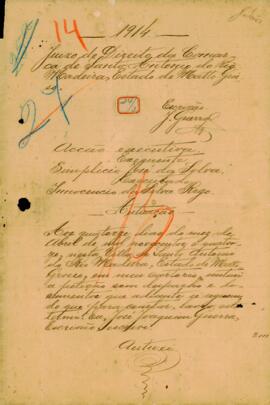 14
1914
Juizo de Direito da Comar-
ca de Santo Antonio do Rio
Madeira, Estado de Matto Gros-
so
Escrivão
J. Guerra
Acção executiva
Exequente
Simplicio José da Sylva
Executado
Innocencio da Sylva Rego
Autuação
Aos quatorze dias do mez de
Abril de mil novecentos e quator-
ze, nesta Villa de Santo Antonio
do Rio Madeira, Estado de Matto
Grosso, em meu cartorio, autuei
a petição com despacho e do-
cumentos que adiante se seguem
do que para constar, lavro este
termo. Eu, José Joaquim Guerra,
Escrivão, escrevi
Autuei